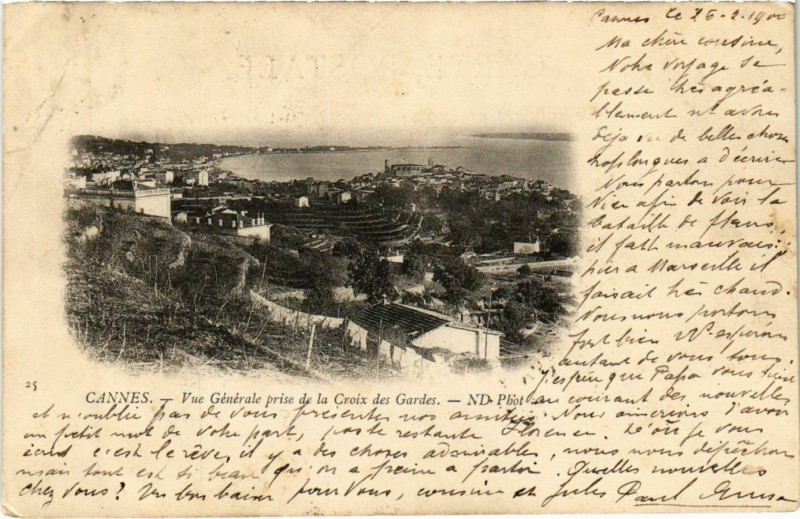 Cannes le 26-2-1900
Ma chère cousine,
Notre voyage se
passe très agréa-
blement et avons
déjà vu de belles choses
trop longues à décrire
Nous partons pour
Nice afin de voir la
bataille de fleurs,
il fait mauvais;
à Marseille il
faisait très chaud.
Nous nous portons
fort bien et espérons
autant de vous tous.
J'espère que Papa vous tient
au courant des nouvelles
25
CANNES. — Vue Générale prise de la Croix des Gardes. — ND Phot
et n'oublie pas de vous présenter nos amitiés. Nous aimerions d'avoir
un petit mot de votre part, poste restante Florence. D'où je vous
c'est le rêve, il y a des choses admirables, nous nous dépêchons
mais tout est si beau qu'on a peine à partir. Quelles nouvelles
chez vous? Un bon baiser pour vous, cousine et Jules